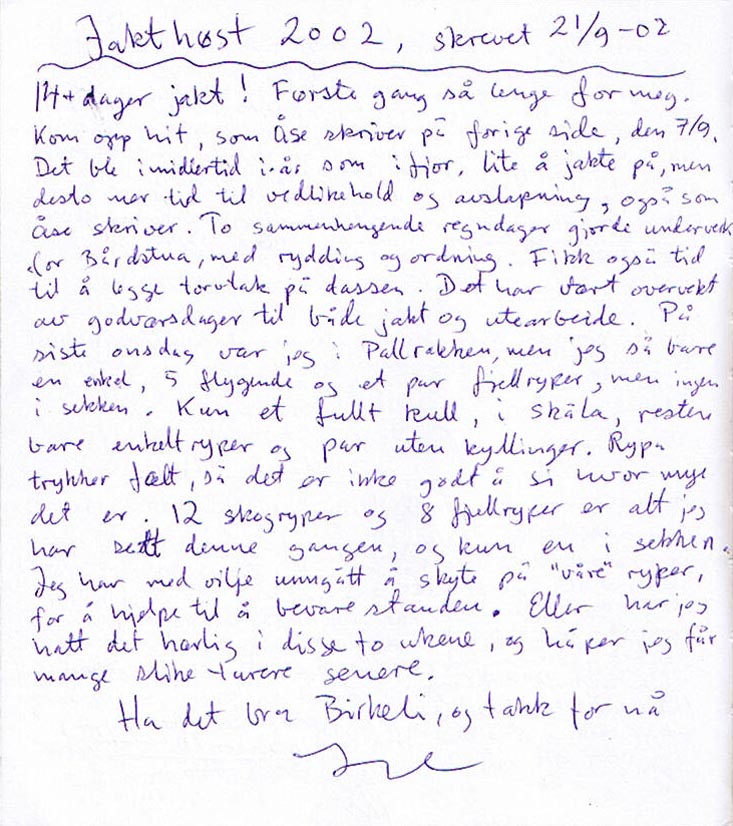 Jakthøst 2002, skrevet 21/9-02
14+ dager jakt! Første gang så lenge for meg.
Kom opp hit, som Åse skriver på forige side, den 7/9.
Det ble imidlertid i år som ifjor, lite å jakte på, men
desto mer tid til vedlikehold og avslapning, også som
Åse skriver. To sammenhengende regndager gjorde underverk
for Bårdstua, med rydding og ordning. Fikk også tid
til å legge torvtak på dassen. Det har vært overvekt
av godværsdager til både jakt og utearbeide. På
siste onsdag var jeg i Pallrakken, men jeg så bare
en enkel, 5 flygende og et par fjellryper, men ingen
i sekken. Kun et fullt kull, i skåla, resten
bare enkeltryper og par uten kyllinger. Rypa
trykker fælt, så det er ikke godt å si hvor mye
det er. 12 skogryper og 8 fjellryper er alt jeg
har sett denne gangen, og kun en i sekken.
Jeg har med vilje unngått å skyte på "våre" ryper,
for å hjelpe til å bevare standen. Eller har jeg
hatt det herlig i disse to ukene, og håper jeg får
mange slike turere senere.
Ha det bra Birkeli, og takk for nå